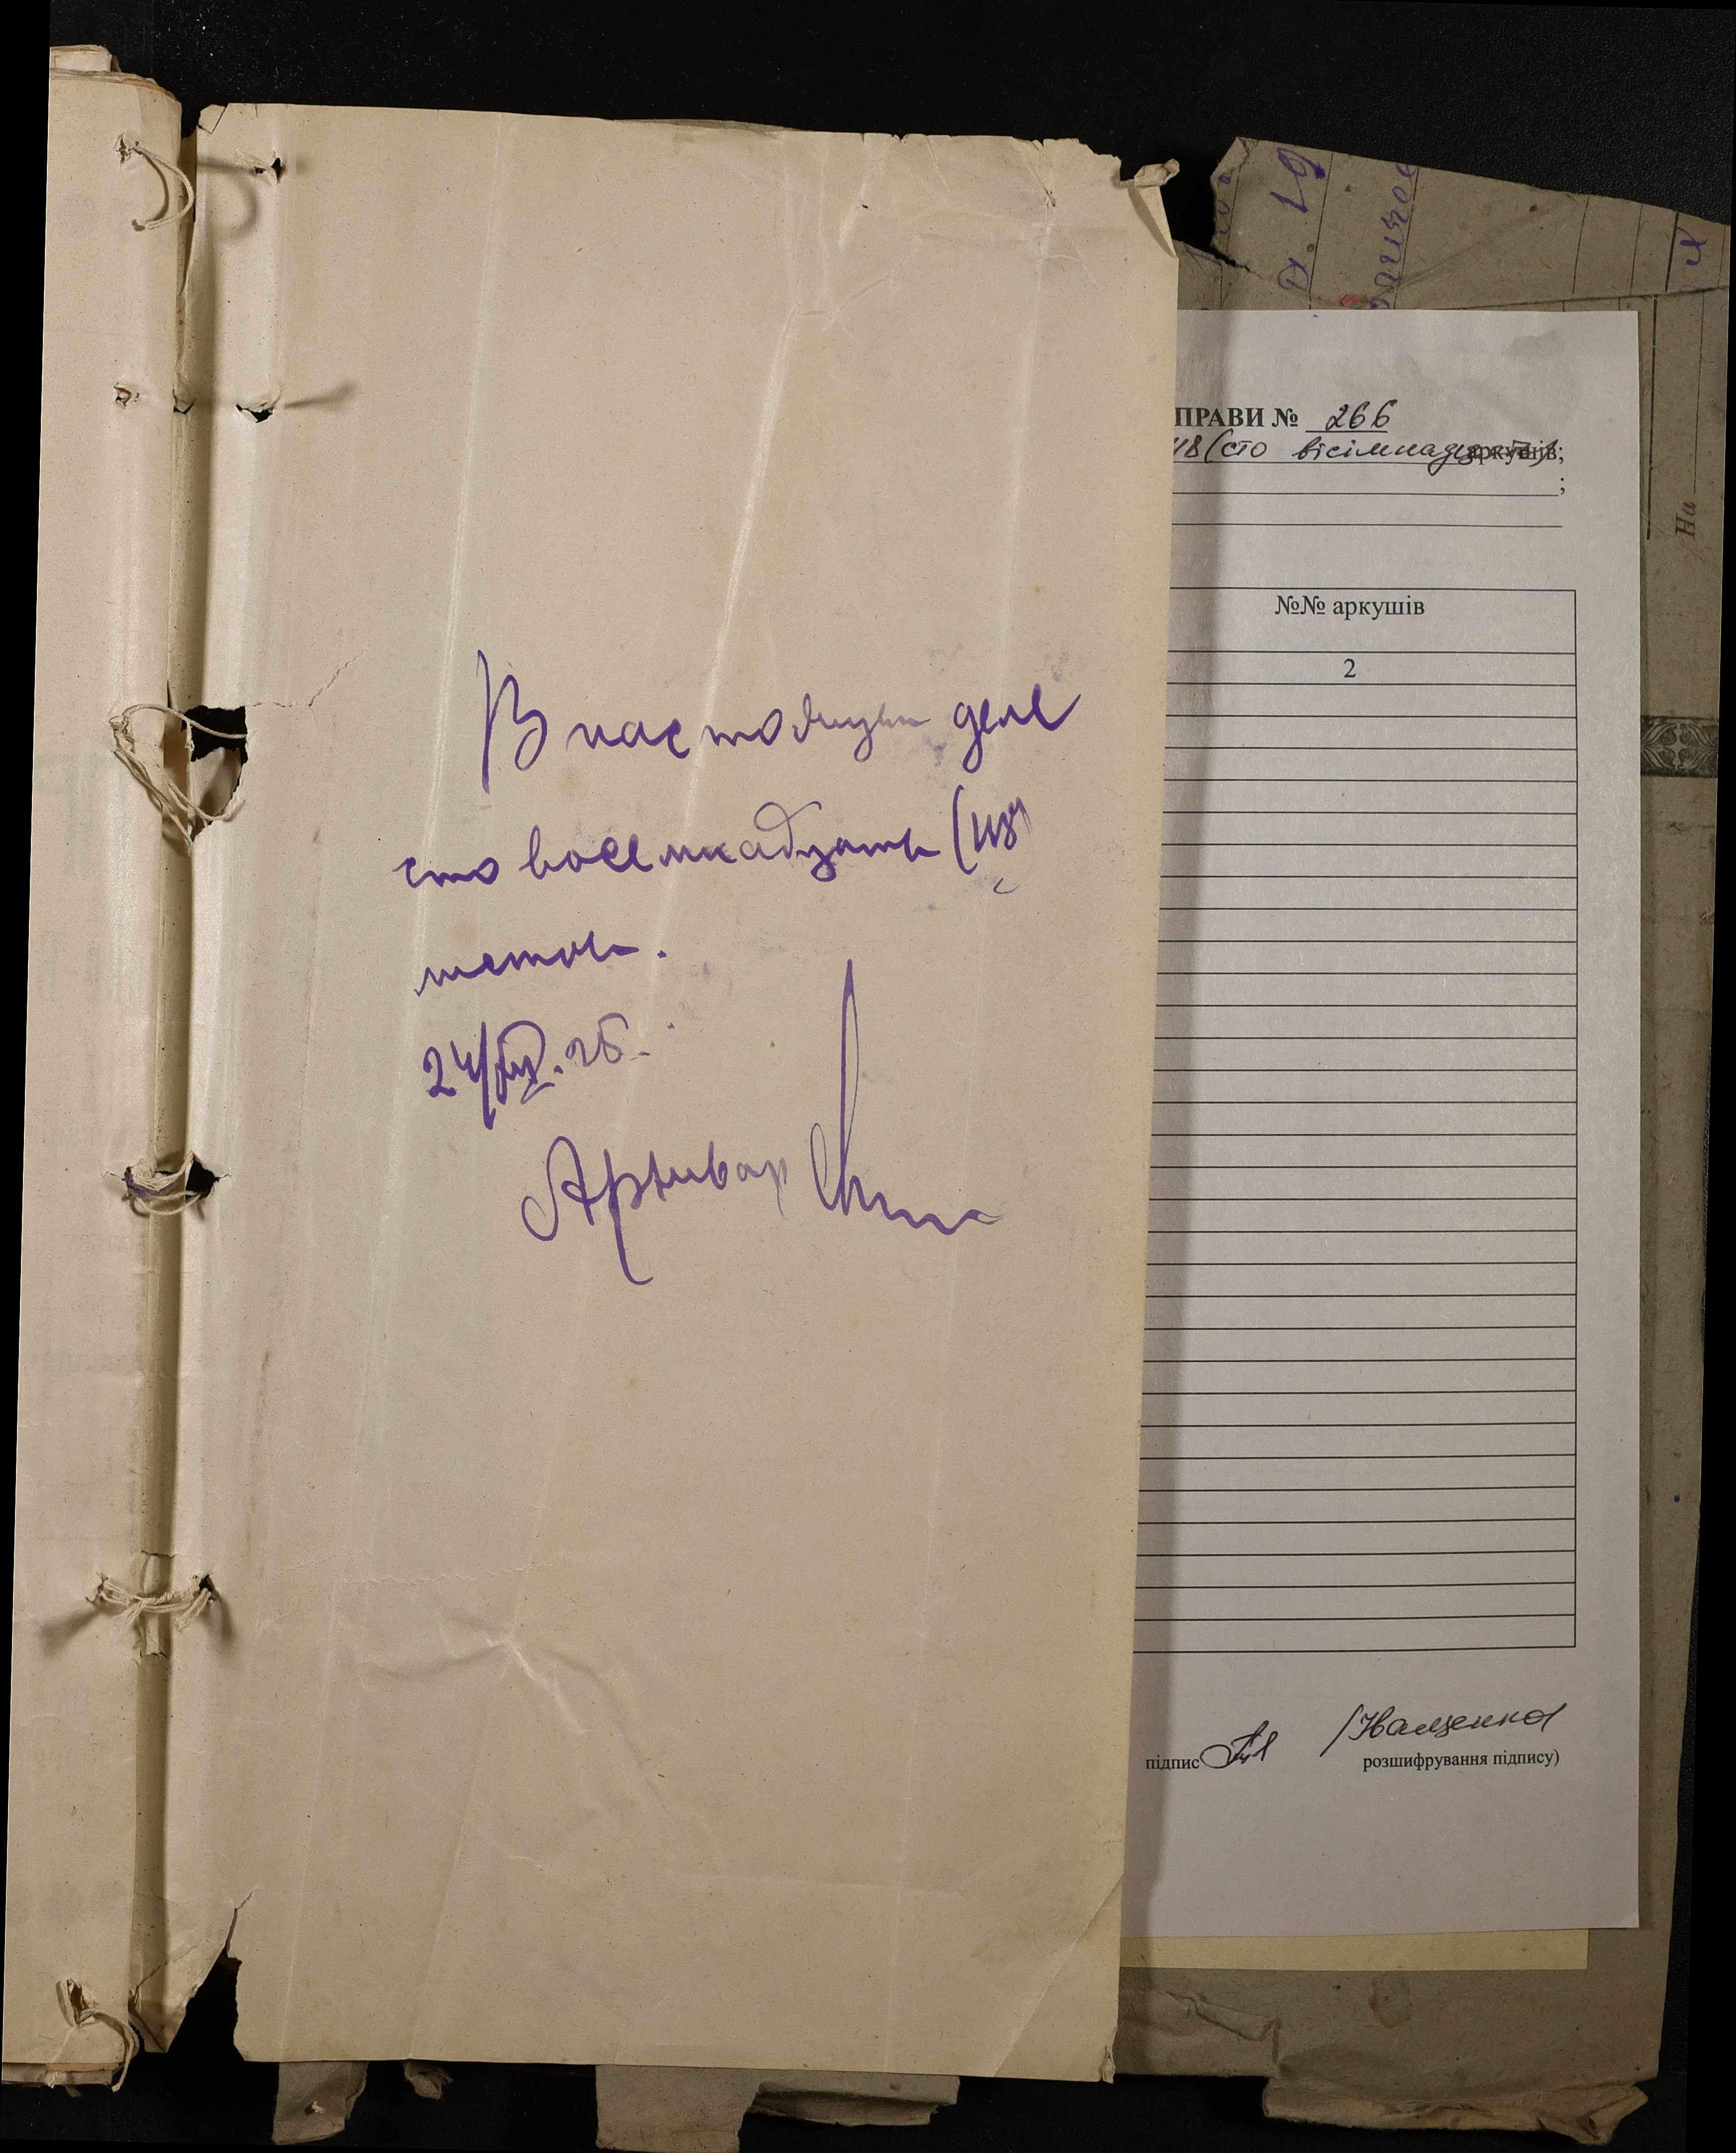 В настоящем деле
сто восемнадцать (118)
листов.
24/VII.26.
Архивар
ПРАВИ № 266
118 (сто вісімнадцять) аркушів;
;
№№ аркушів
2
підпис
/Іващенко/
розшифрування підпису)
На